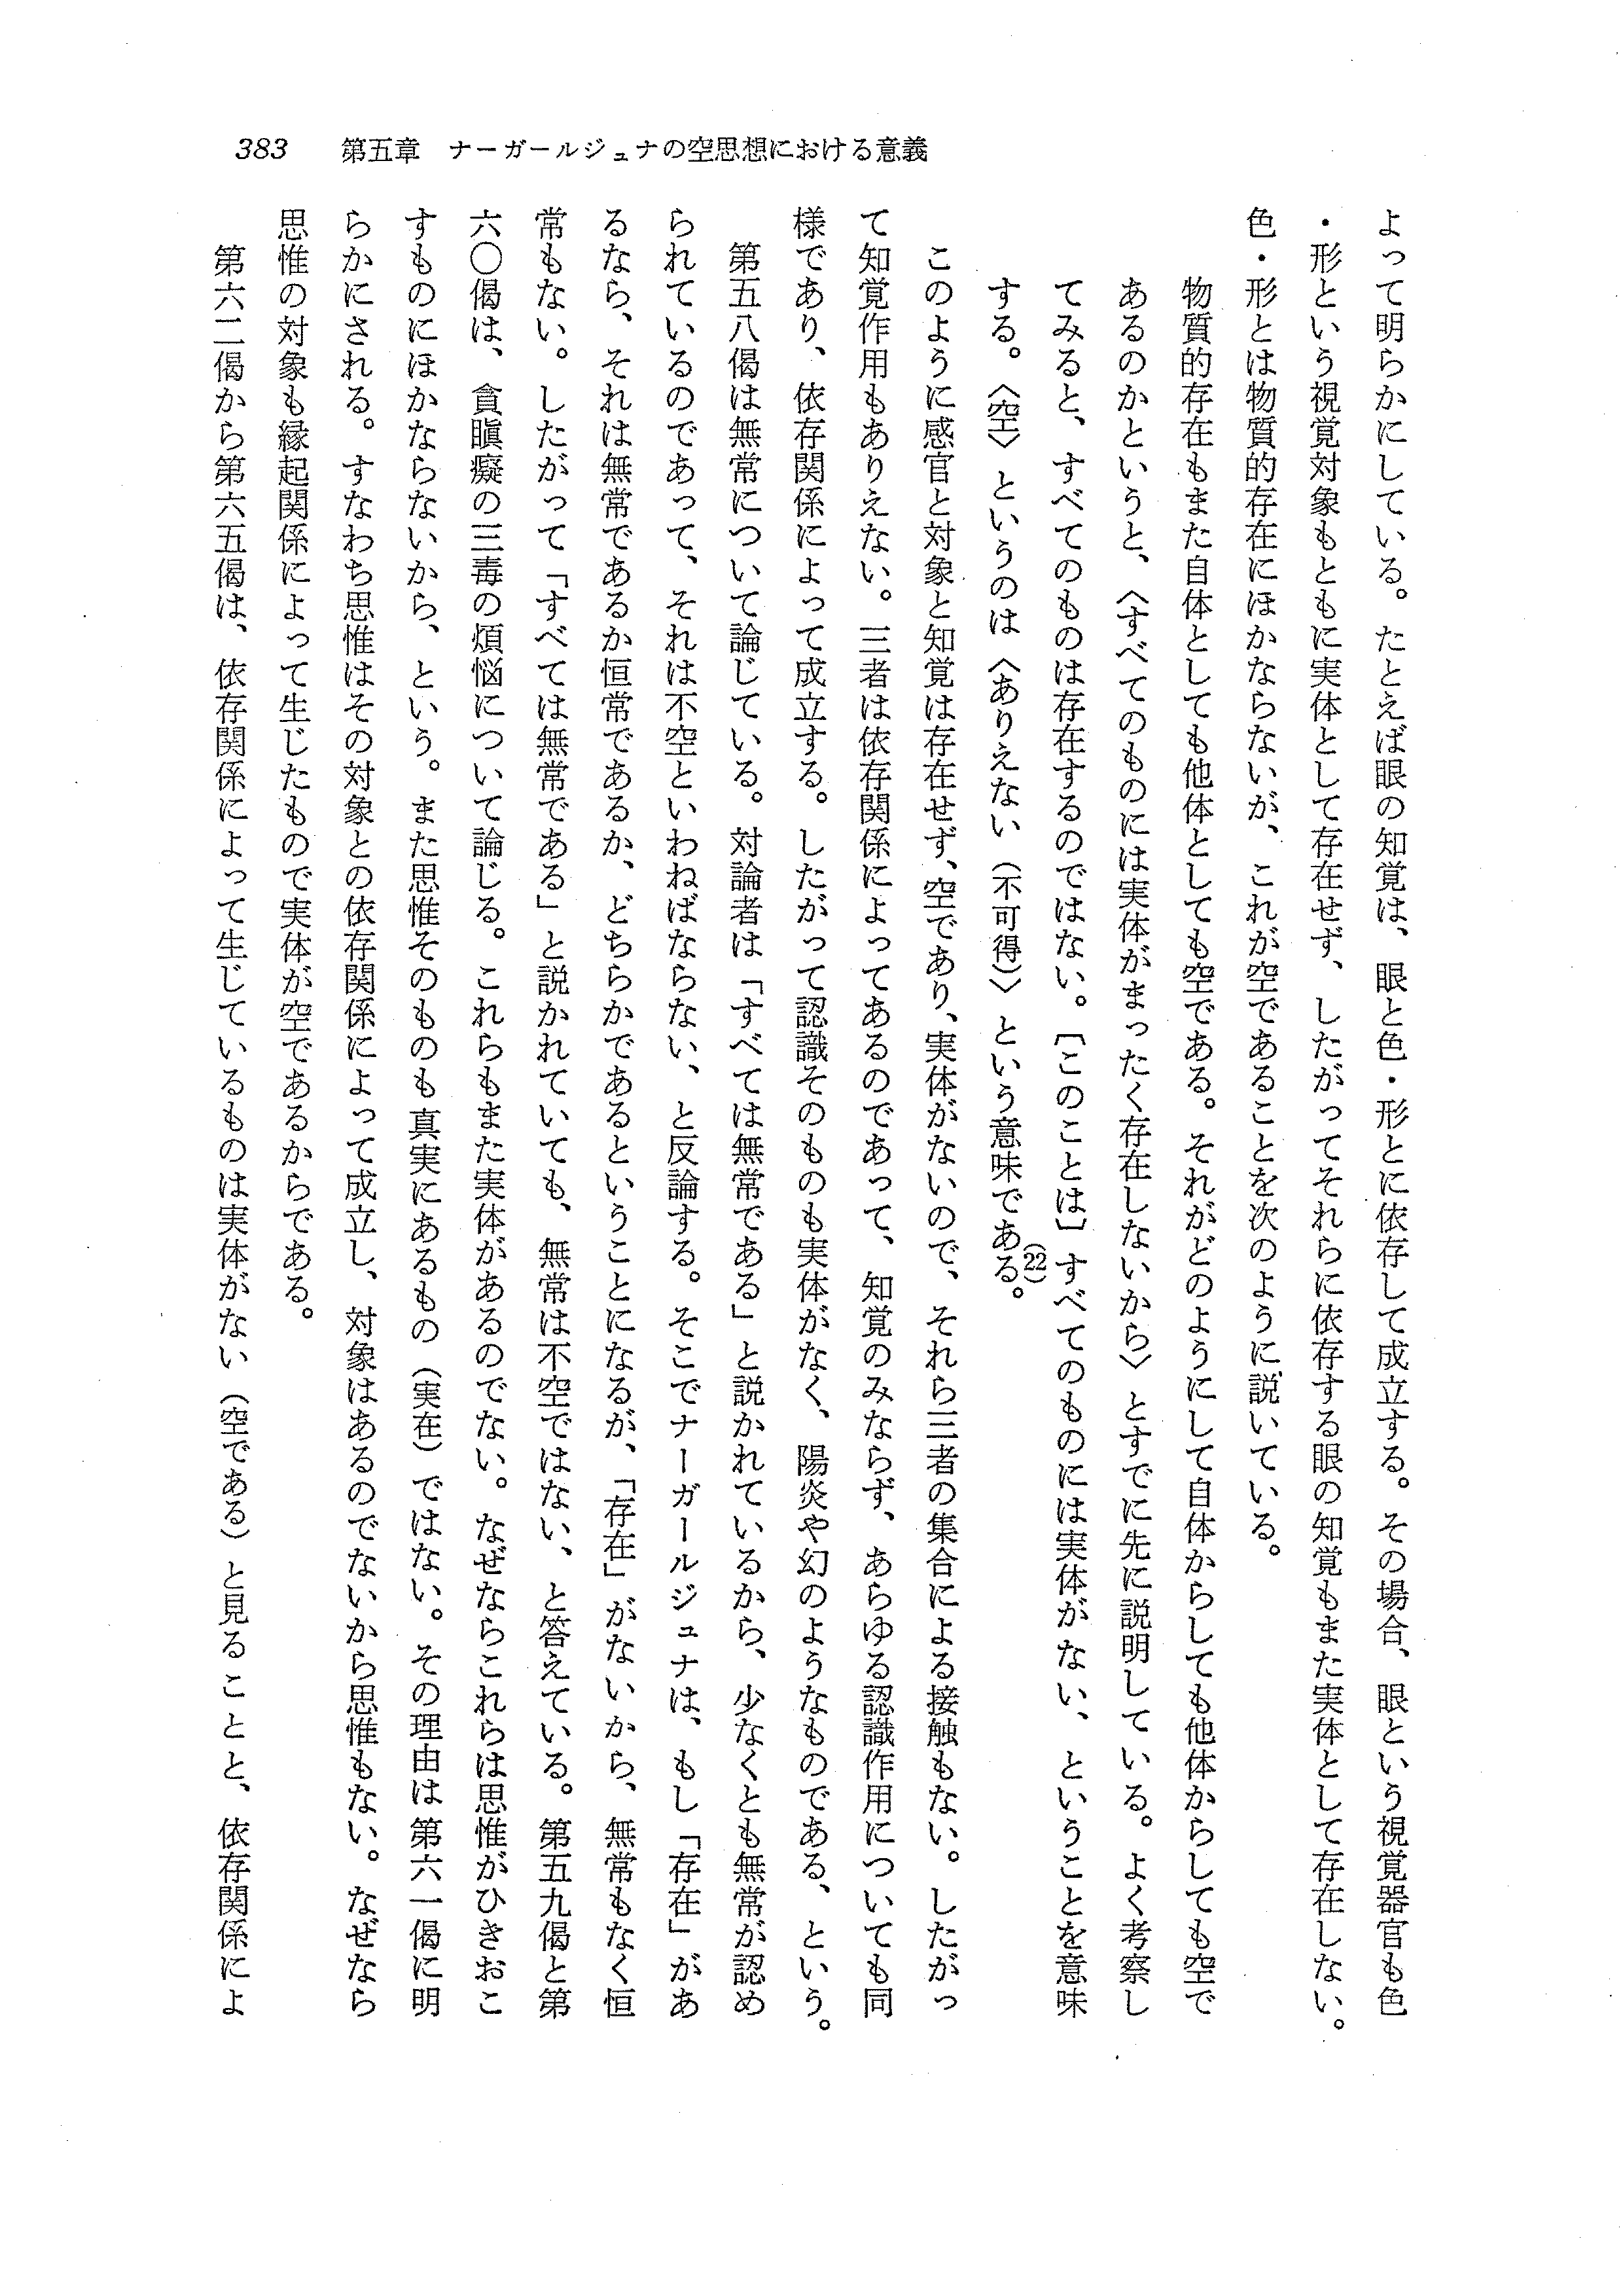 383　第五章　ナーガールジュナの空思想における意義
よって明らかにしている。たとえば眼の知覚は、眼と色・形とに依存して成立する。その場合、眼という視覚器官も色
・形という視覚対象もともに実体として存在せず、したがってそれらに依存する眼の知覚もまた実体として存在しない。
色・形とは物質的存在にほかならないが、これが空であることを次のように説いている。
物質的存在もまた自体としても他体としても空である。それがどのようにして自体からしても他体からしても空で
あるのかというと、〈すべてのものには実体がまったく存在しないから〉とすでに先に説明している。よく考察し
てみると、すべてのものは存在するのではない。〔このことは〕すべてのものには実体がない、ということを意味
する。〈空〉というのは〈ありえない（不可得）〉という意味である。(22)
このように感官と対象と知覚は存在せず、空であり、実体がないので、それら三者の集合による接触もない。したがっ
て知覚作用もありえない。三者は依存関係によってあるのであって、知覚のみならず、あらゆる認識作用についても同
様であり、依存関係によって成立する。したがって認識そのものも実体がなく、陽炎や幻のようなものである、という。
第五八偈は無常について論じている。対論者は「すべては無常である」と説かれているから、少なくとも無常が認め
られているのであって、それは不空といわねばならない、と反論する。そこでナーガールジュナは、もし「存在」があ
るなら、それは無常であるか恒常であるか、どちらかであるということになるが、「存在」がないから、無常もなく恒
常もない。したがって「すべては無常である」と説かれていても、無常は不空ではない、と答えている。第五九偈と第
六〇偈は、貪瞋癡の三毒の煩悩について論じる。これらもまた実体があるのでない。なぜならこれらは思惟がひきおこ
すものにほかならないから、という。また思惟そのものも真実にあるもの（実在）ではない。その理由は第六一偈に明
らかにされる。すなわち思惟はその対象との依存関係によって成立し、対象はあるのでないから思惟もない。なぜなら
思惟の対象も縁起関係によって生じたもので実体が空であるからである。
第六二偈から第六五偈は、依存関係によって生じているものは実体がない（空である）と見ることと、依存関係によ